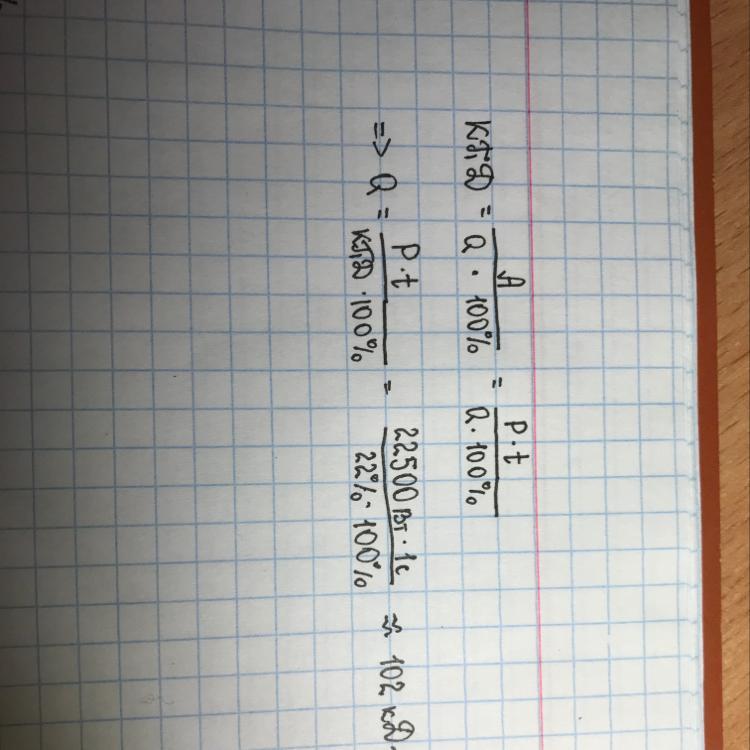 КПД = A / Q · 100% = P·t / Q·100%
=> Q = P·t / КПД·100% = 22500 Вт·1с / 22%·100% ≈ 102 кД